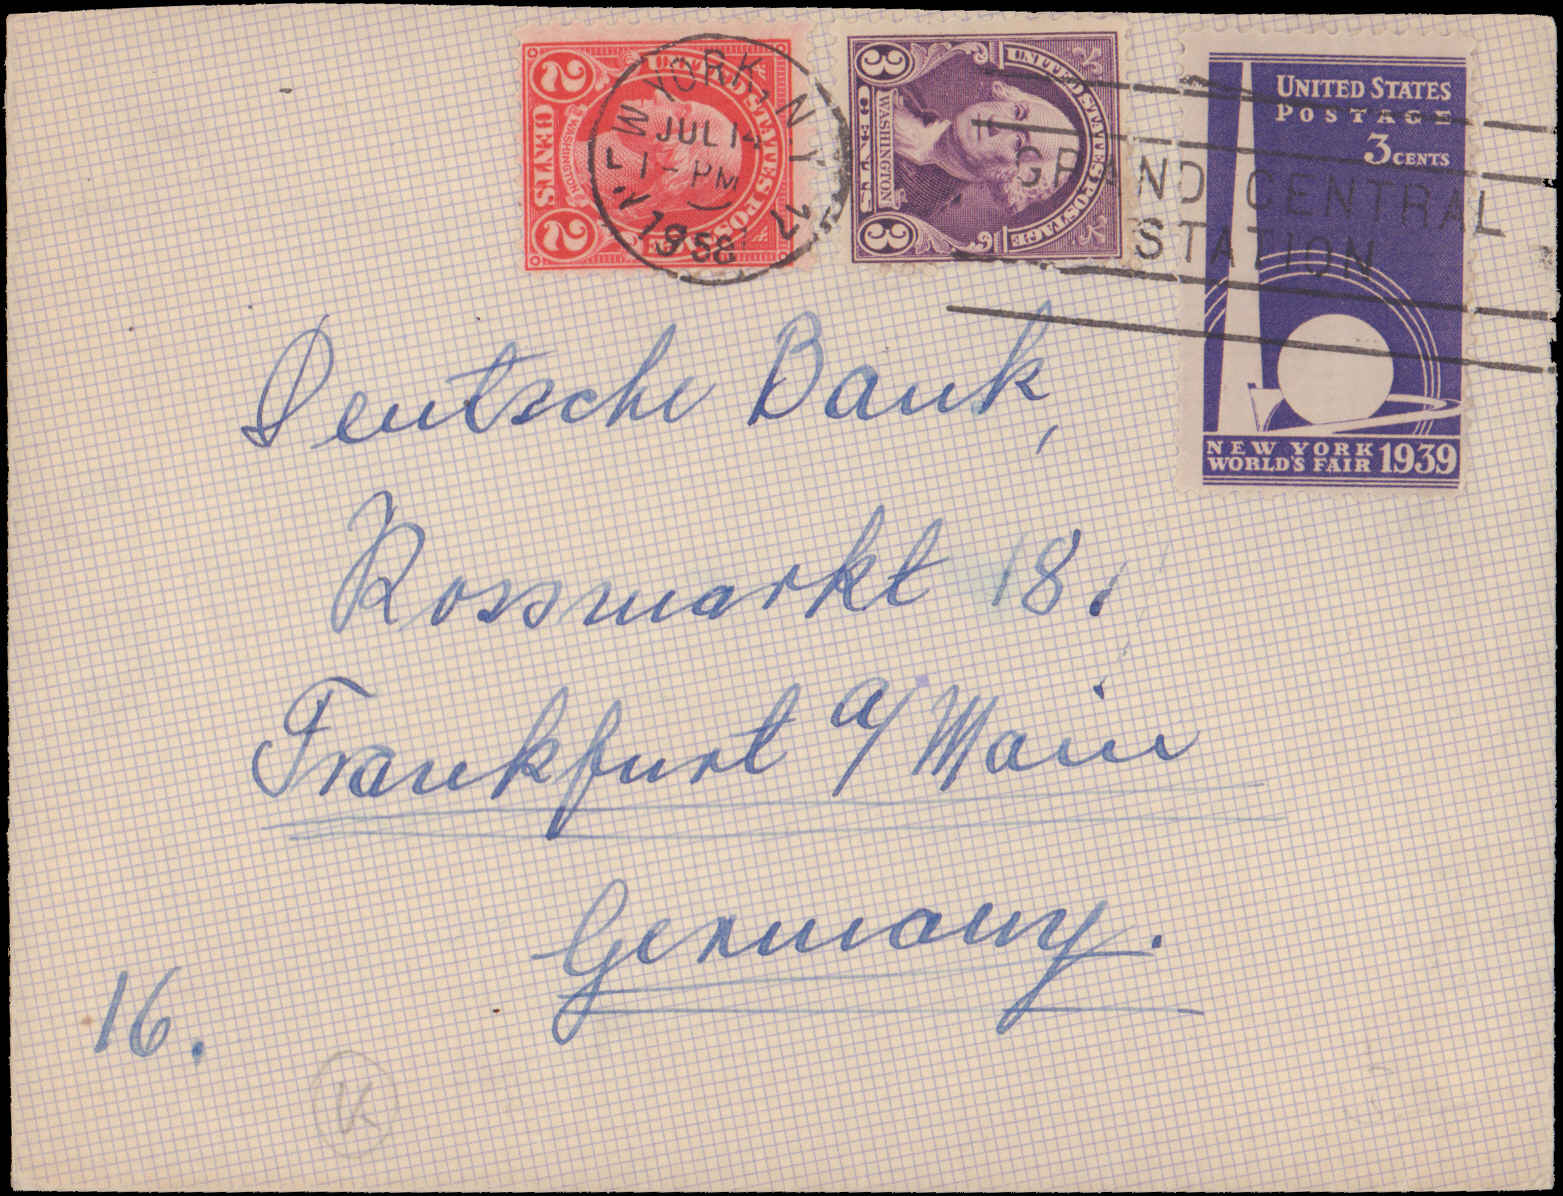 2 CENTS 2
UNITED STATES POSTAGE
WASHINGTON
YORK, N.Y.
JUL 14
1 - PM
3 CENTS 3
UNITED STATES POSTAGE
WASHINGTON
UNITED STATES
POSTAGE
3 CENTS
GRAND CENTRAL
STATION
NEW YORK
WORLD'S FAIR 1939
Deutsche Bank,
Rossmarkt 18.
Frankfurt a/Main
Germany.
16.
K